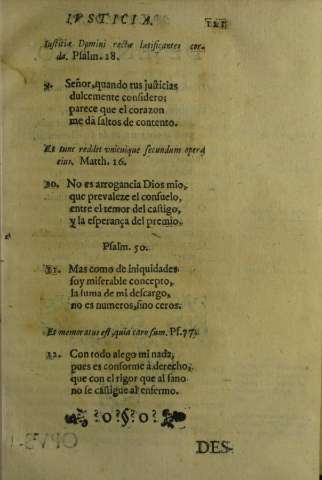 IVSTICIA. 121
Iustitiæ Domini rectæ lætificantes cor-
da. Psalm. 18.
9. Señor, quando tus justicias
dulcemente considero;
parece que el corazon
me dá saltos de contento.
Et tunc reddet vnicuique secundum opera
eius. Matth. 16.
20. No es arrogancia Dios mio,
que prevaleze el consuelo,
entre el temor del castigo,
y la esperança del premio.
Psalm. 50.
21. Mas como de iniquidades
soy miserable concepto,
la suma de mi descargo,
no es numeros, sino ceros.
Et memoratus est, quia caro sum. Ps. 77.
22. Con todo alego mi nada,
pues es conforme á derecho,
que con el rigor que al sano
no se castigue al enfermo.
DES-